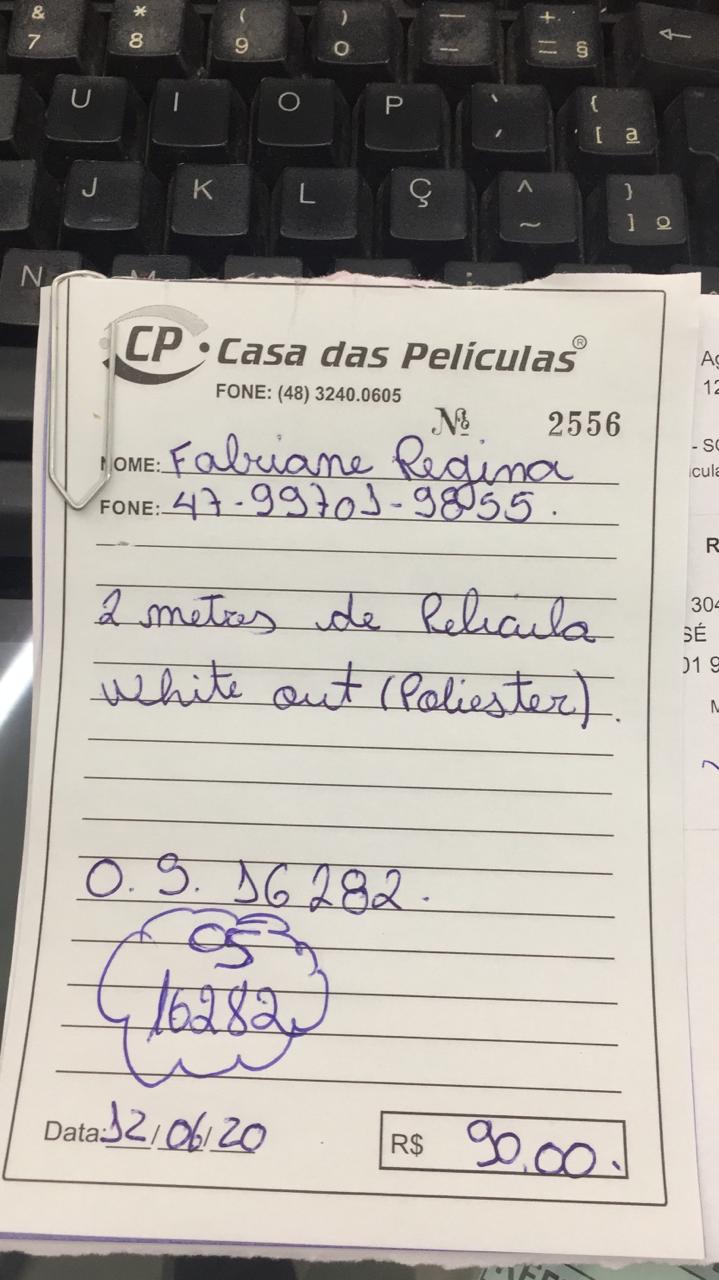 & * ( ) — +
7 8 9 0 – = §
U I O P ` {
´ [ ª
J K L Ç ^ }
~ ] º
N M
CP • Casa das Películas®
FONE: (48) 3240.0605
Nº 2556
NOME: Fabriane Regina
FONE: 47-99701-9855.
2 metros de Pelicula
White out (Poliester).
O.S. 16282.
OS
16282
Data: 12/06/20 R$ 90,00.
Ag
12
- SC
icula
R
304
SÉ
01 9